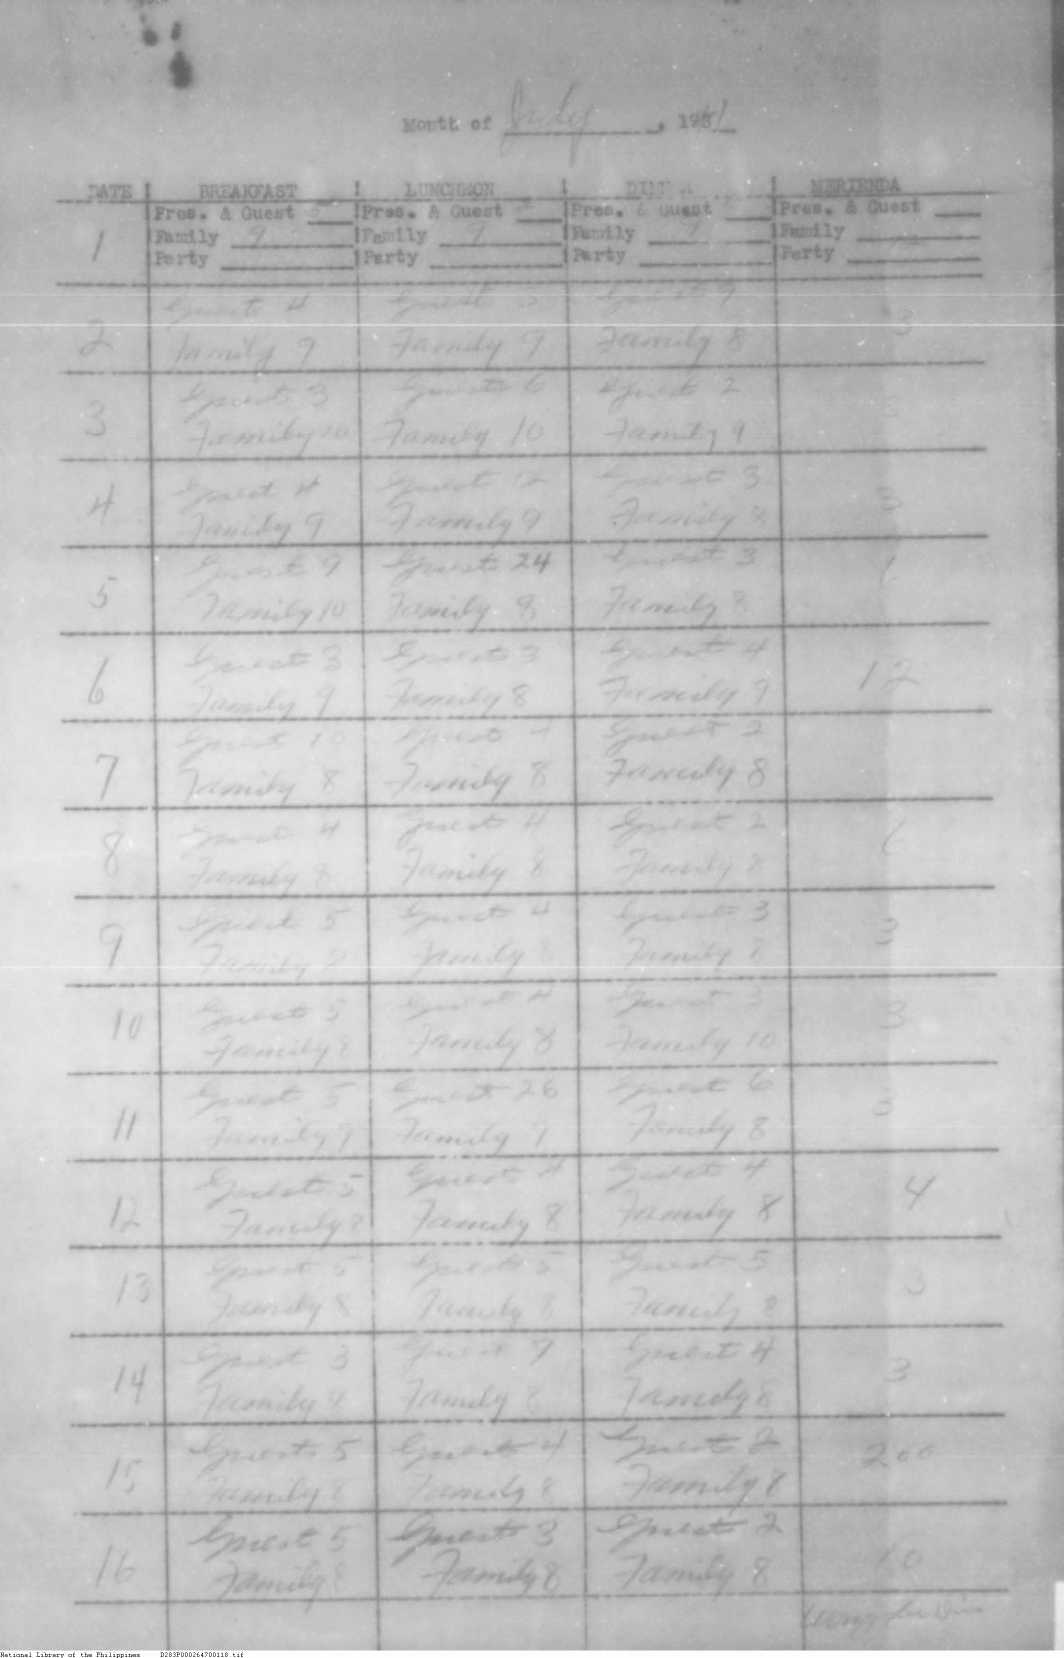 Month of July, 1941
DATE BREAKFAST LUNCHEON MERIENDA
Pres. & Guest 5 Pres. & Guest Pres. & Guest Pres. & Guest
1 Family 9 Family 9 Family 9 Family
Party Party Party Party
Guest 4 Guest Guest
2 Family 9 Family 9 Family 8 3
Guest 3 Guest 6 Guest 2
3 Family 10 Family 10 Family 9
Guest 4 Guest 12 Guest 3
4 Family 9 Family 9 Family 8 3
Guest 9 Guest 24 Guest 3
5 Family 10 Family 8 Family 8
Guest 3 Guest 3 Guest 4
6 Family 9 Family 8 Family 9 12
Guest 10 Guest Guest 2
7 Family 8 Family 8 Family 8
Guest 4 Guest 4 Guest 2
8 Family 8 Family 8 Family 8
Guest 5 Guest 4 Guest 3
9 Family Family 8 Family 8 3
Guest 5 Guest 4 Guest 3
10 Family 8 Family 8 Family 10 3
Guest 5 Guest 26 Guest 6
11 Family 9 Family 9 Family 8
Guest 5 Guest 4 Guest 4
12 Family 8 Family 8 Family 8 4
Guest 5 Guest 5 Guest 5
13 Family 8 Family 8 Family 8 3
Guest 3 Guest 9 Guest 4
14 Family 9 Family 8 Family 8 3
Guests 5 Guest 4 Guest 2
15 Family 8 Family 8 Family 8 200
Guest 5 Guest 3 Guest 2
16 Family 8 Family 8 Family 8 10
National Library of the Philippines D283P000264700118.tif